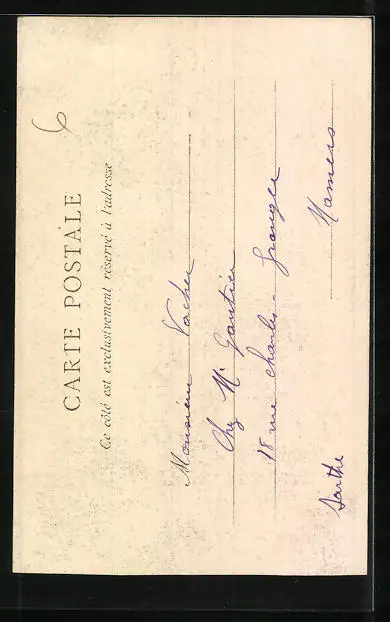 6
CARTE POSTALE
Ce côté est exclusivement réservé à l'adresse
Monsieur Vacher
Chez M. Gautier
18 rue Charles-Granger
Mamers
Sarthe